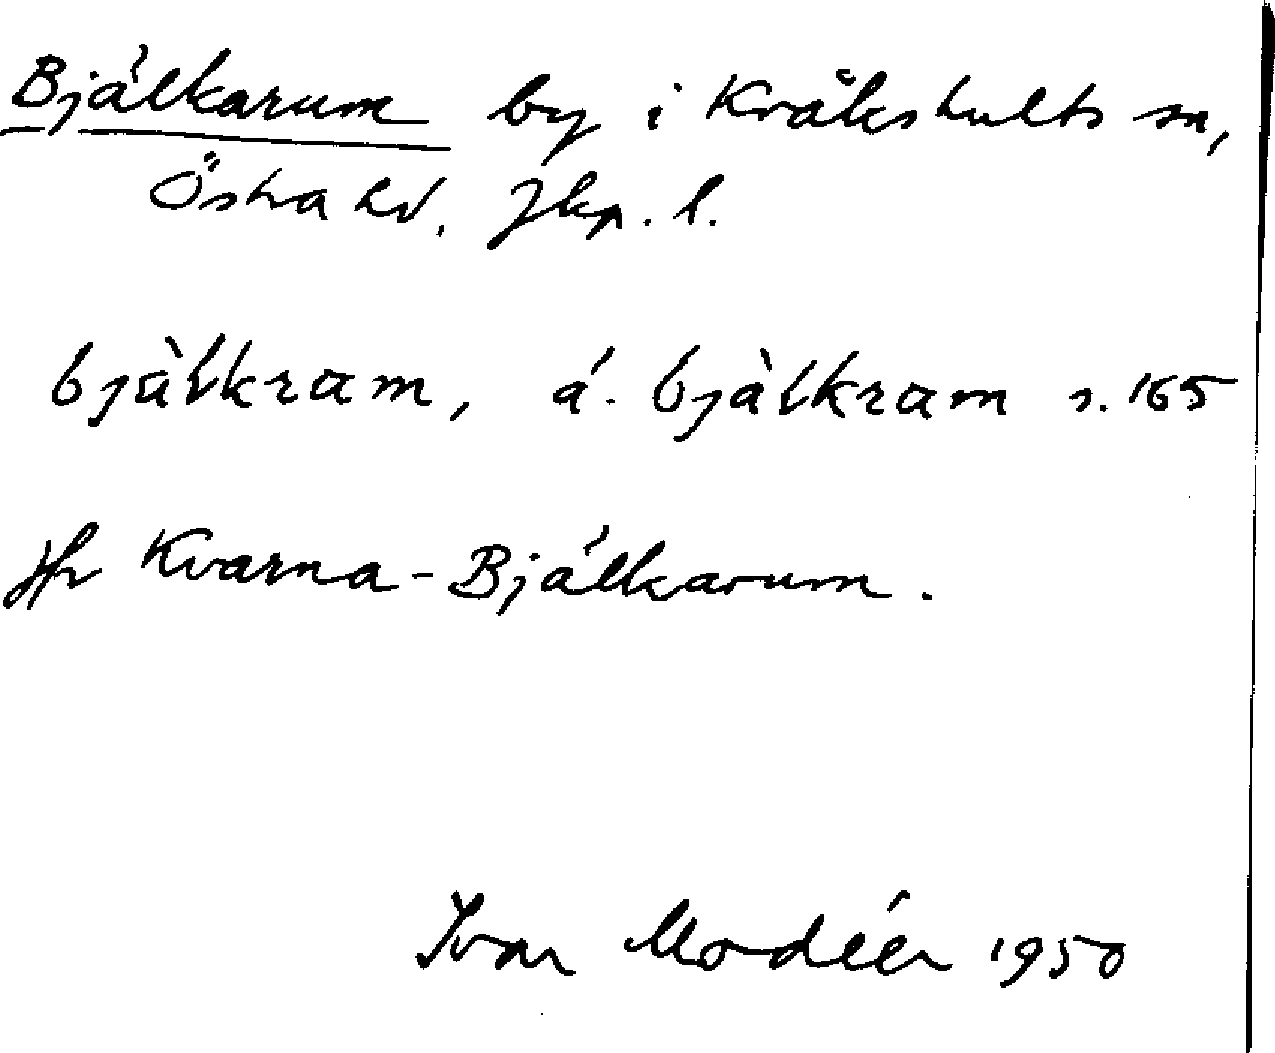 Bjälkarum by i Kråkshults sn,
Östra hd. Jkp. l.
bjàlkram, á. bjàlkram s. 165
Jfr Kvarna-Bjälkarum.
Ivar Modéer 1950